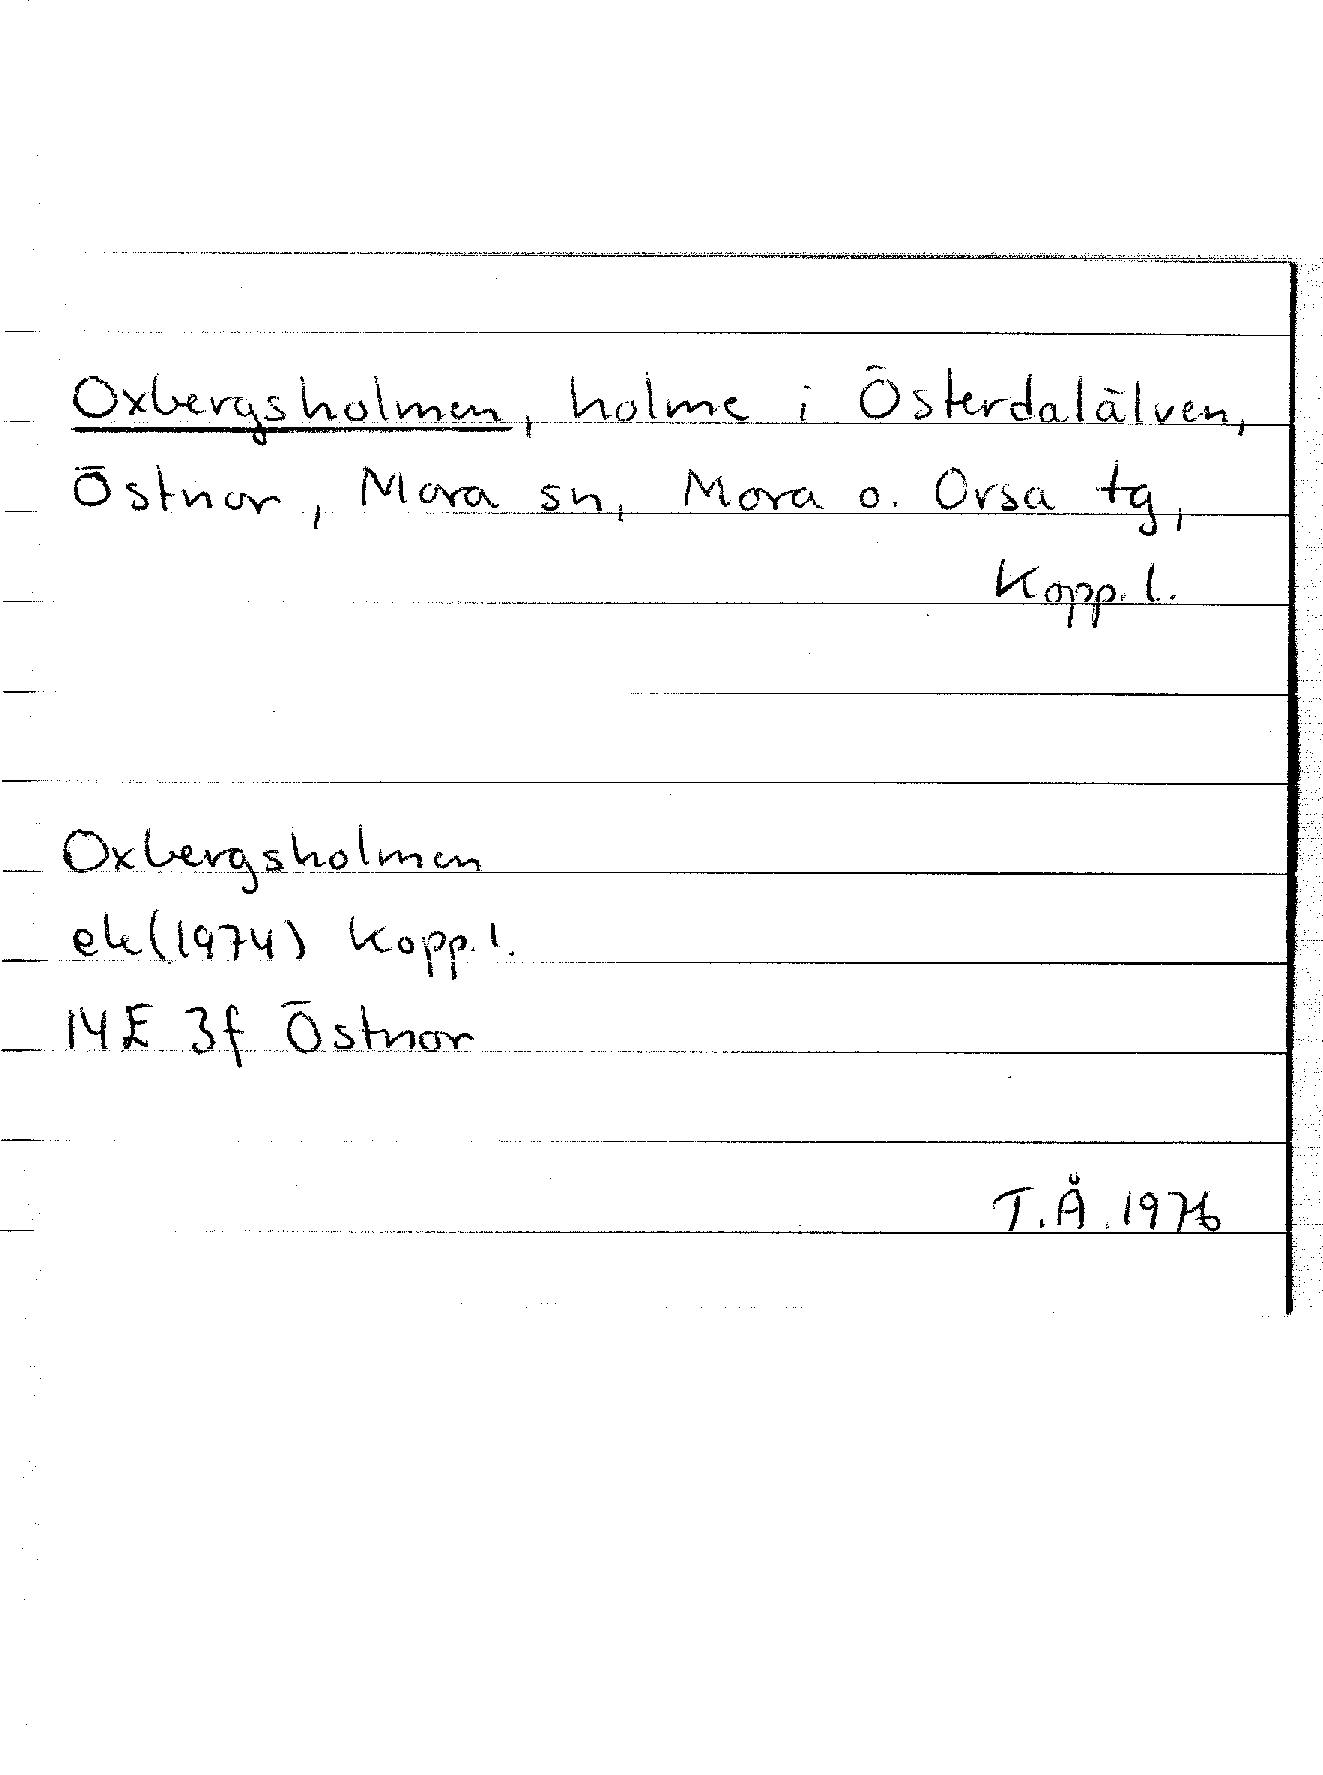 Oxbergsholmen, holme i Österdalälven,
Östnor, Mora sn, Mora o. Orsa tg,
Kopp. l.
Oxbergsholmen
ek(1974) Kopp. l.
14E 3f Östnor
T.Å. 1976